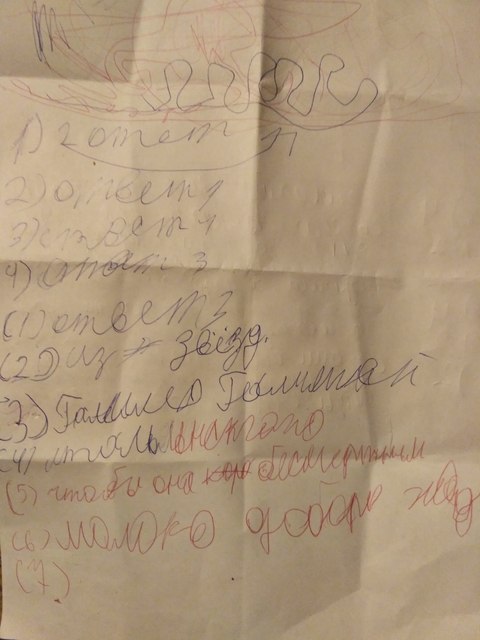 1) 2 ответ
2) ответ 1
3) ответ 1
4) ответ 3
(1) ответ 2
(2) из звёзд.
(3) Галилео Галилей
(4) итальянского
(5) чтобы она бессмертным
(6) молоко
(7)